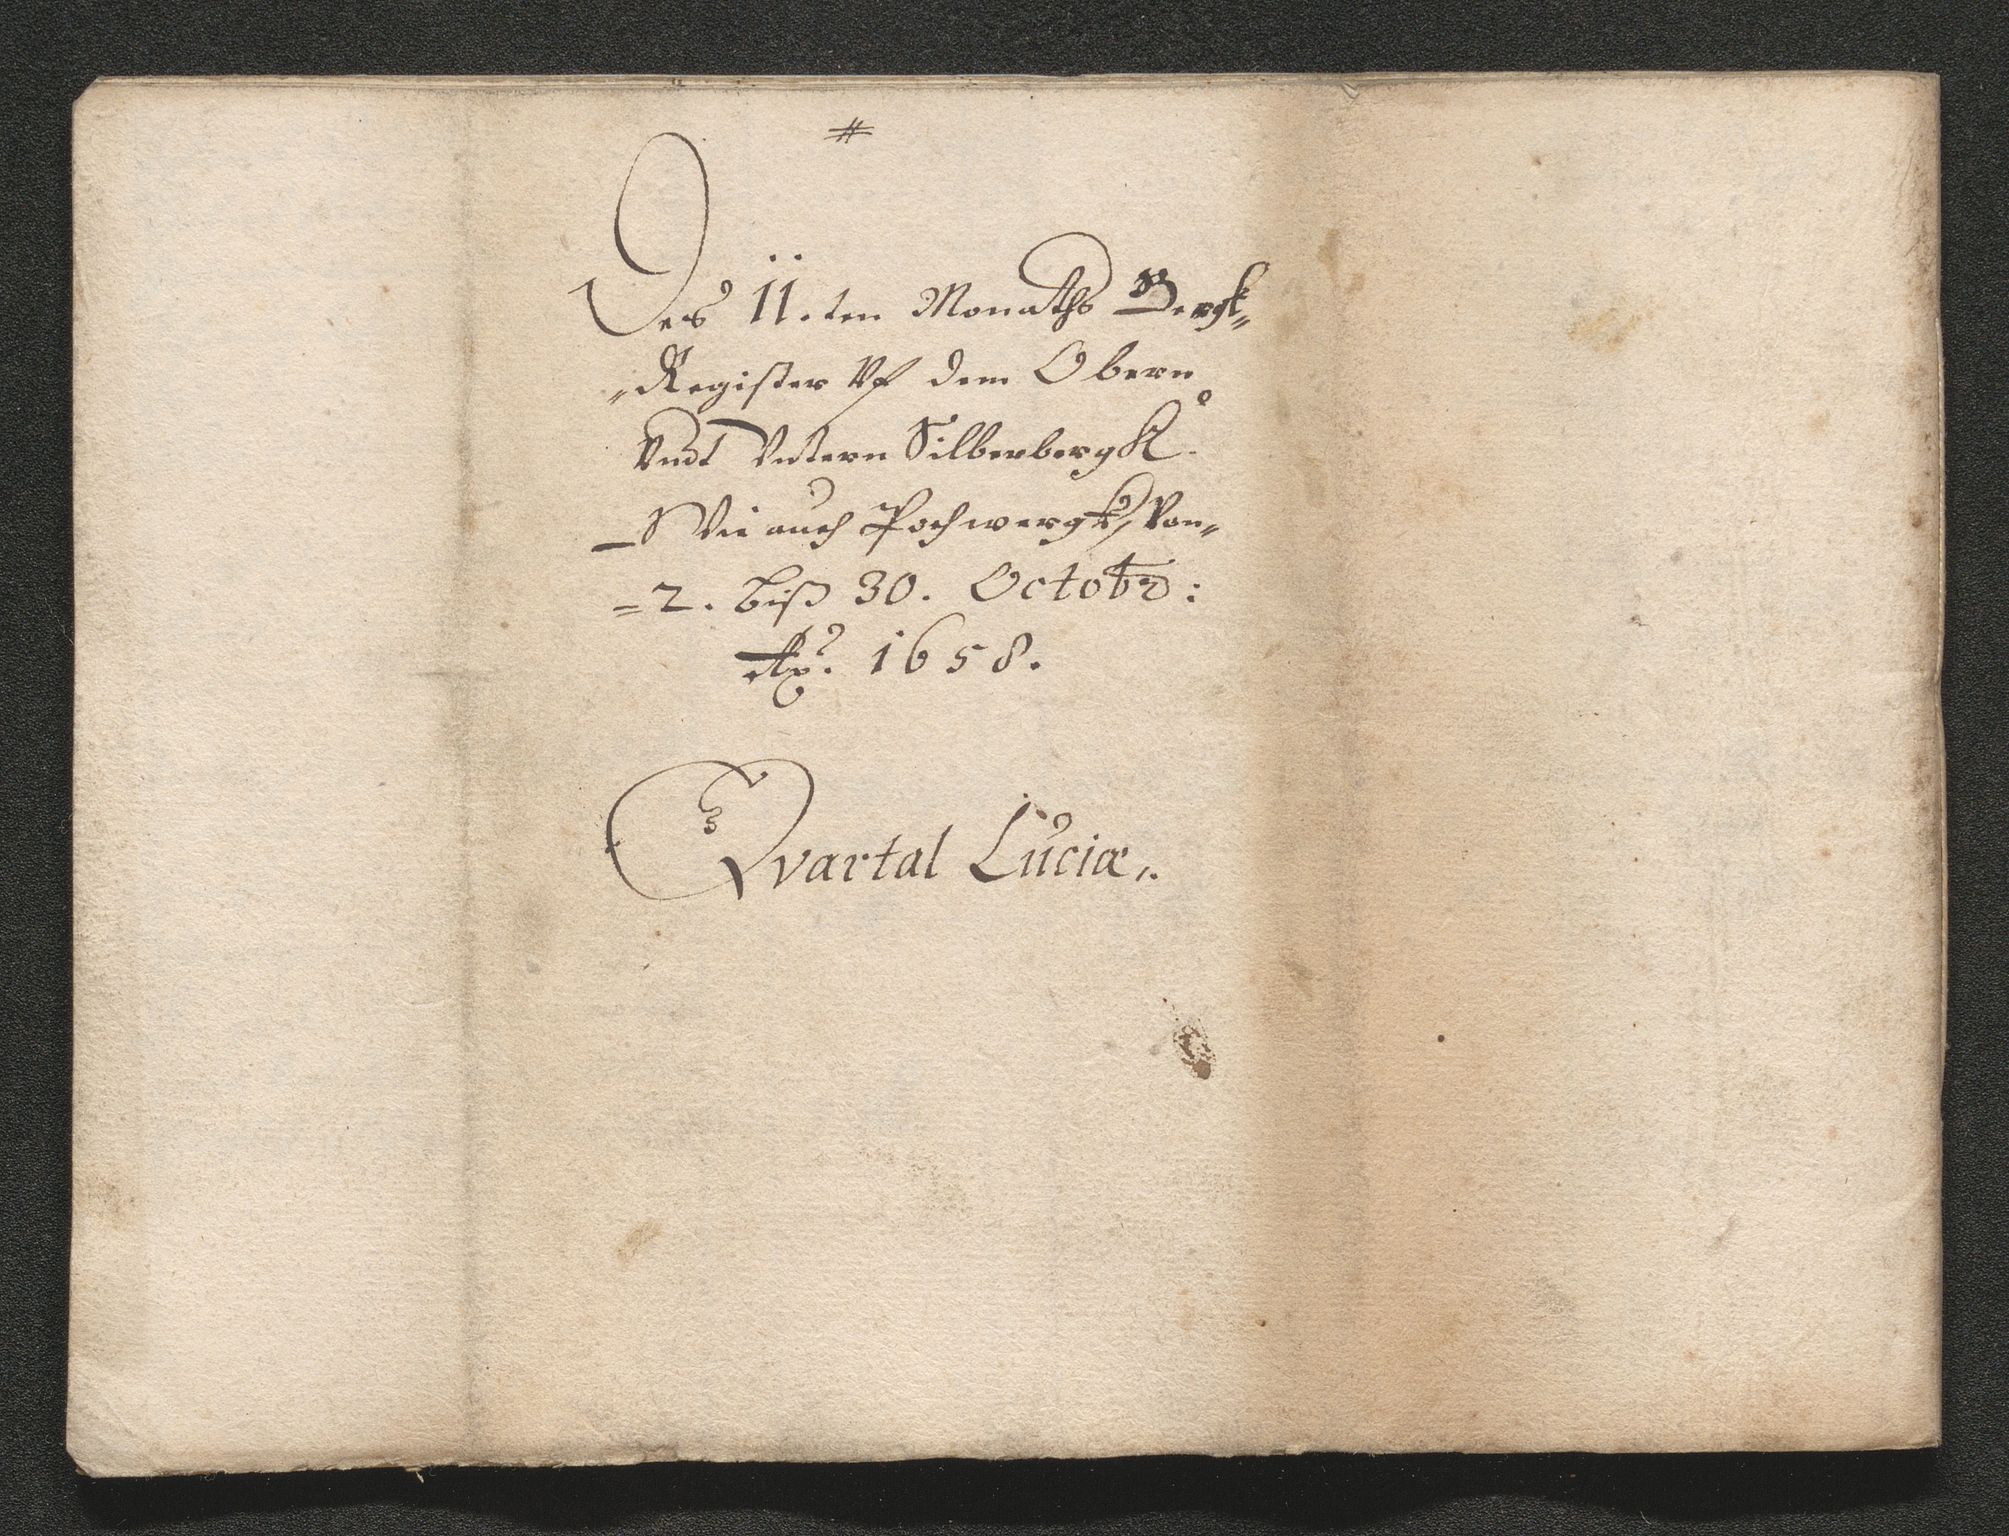 #
Des 11.ten Monaths Bergk-
-Register Vf dem Obern
Vndt Vntern Silberbergk.
Wie auch Pochwergk, Von-
=2. biß 30. Octobr:
Ao. 1658.
Qvartal Luciæ.